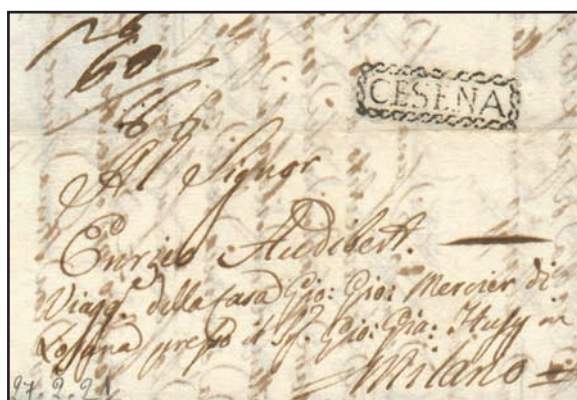 60
CESENA
Al Signor
Enrico Audibert.
Viagg.e della Casa Gio: Gio: Mercier di
Losana presso il Sr. Gio:
Milano
27.2.21